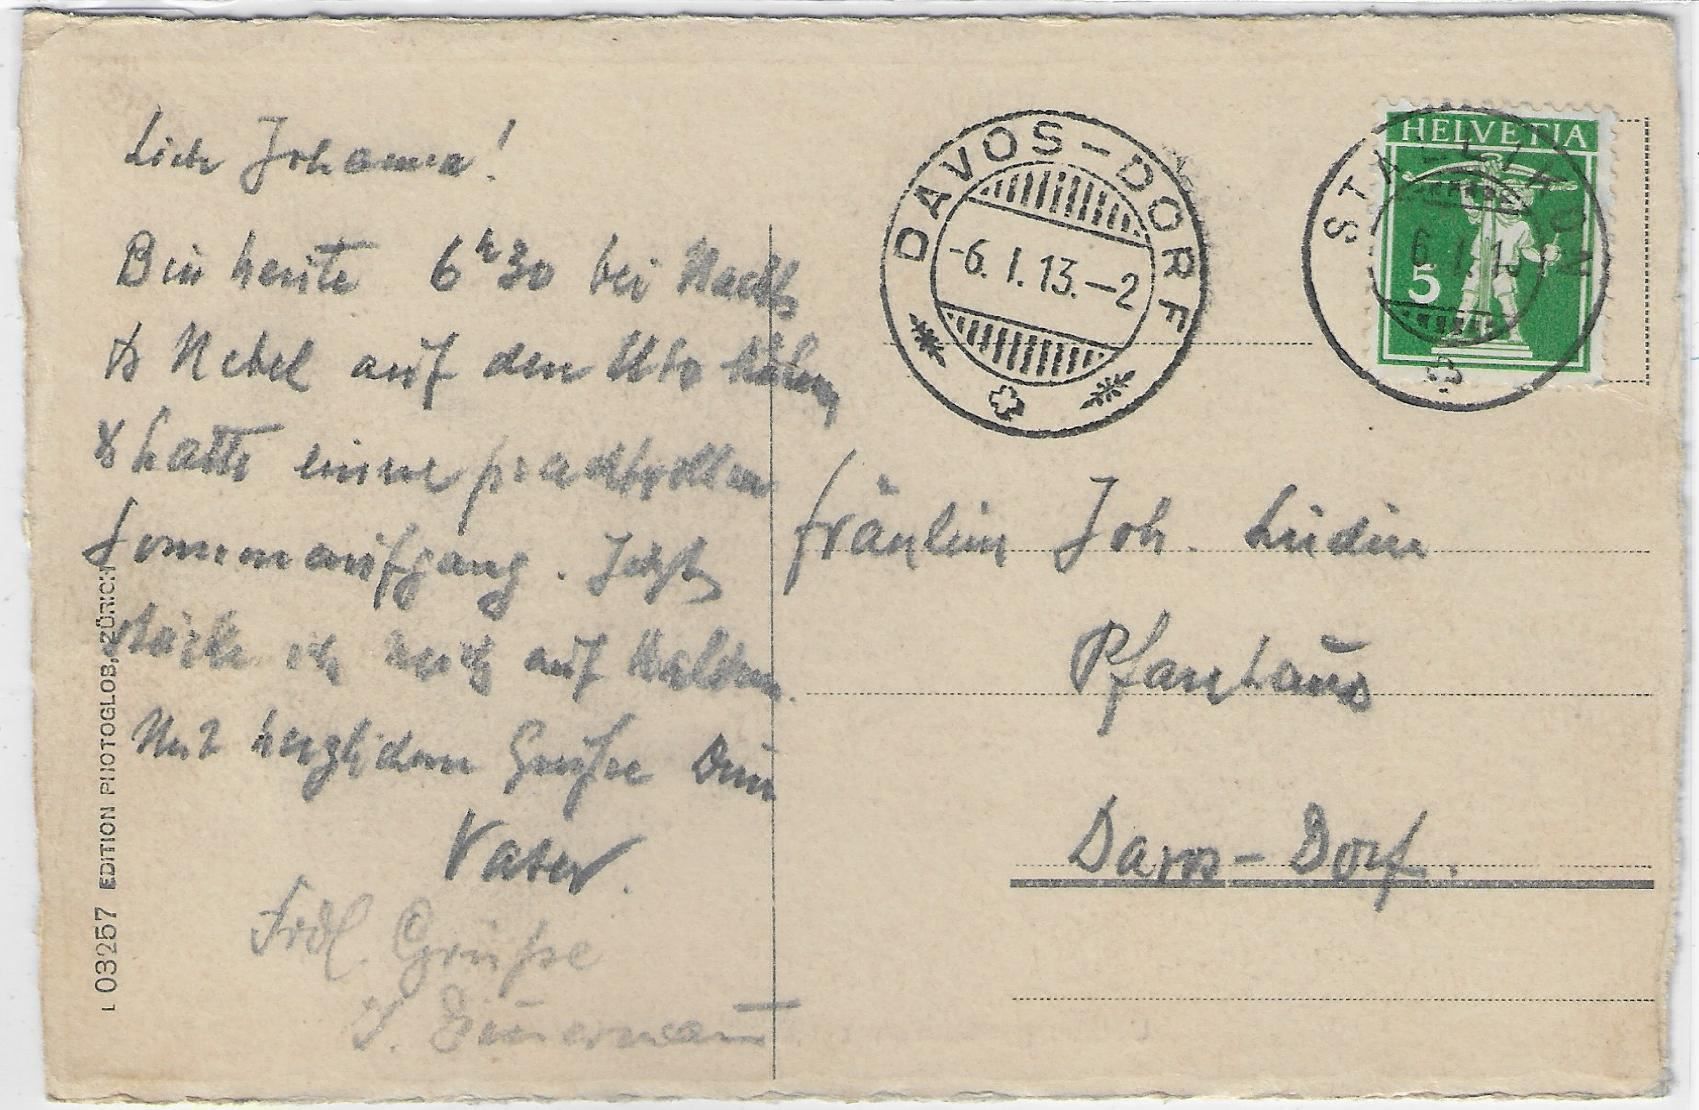 Liebe Johanna!
Bin heute 6 h 30 bei Nacht
& Nebel auf den Uto
& hatte einen prachtvollen
Sonnenaufgang. Jetzt
ich mich auf
Mit herzlichem Grusse Dein
Vater.
Frdl. Grüsse
L 03257 EDITION PHOTOGLOB, ZÜRICH
DAVOS-DORF
-6. I. 13.-2
HELVETIA
5
STALLIKON
6. I. 13
Fräulein Joh. Lüdin
Pfarrhaus
Davos-Dorf.